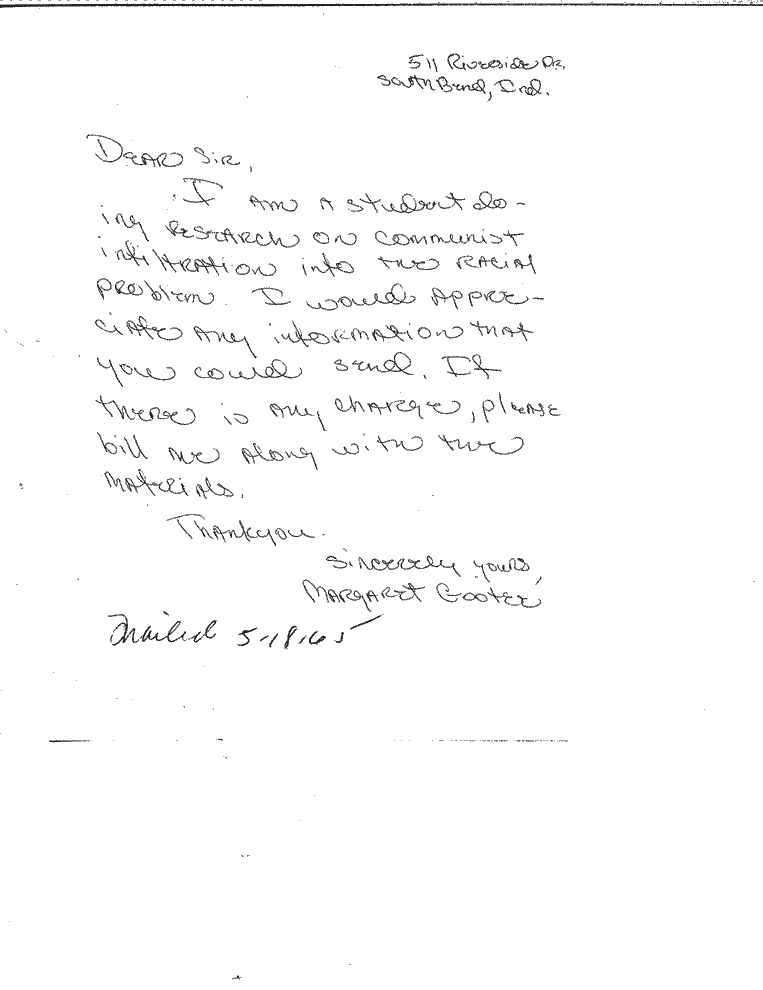 511 Riverside Dr.
South Bend, Ind.
Dear Sir,
I am a student do-
ing research on communist
infiltration into the racial
problem. I would appre-
ciate any information that
you could send. If
there is any charge, please
bill me along with the
materials.
Thankyou.
Sincerely yours,
Margaret Gooter
Mailed 5-18-65